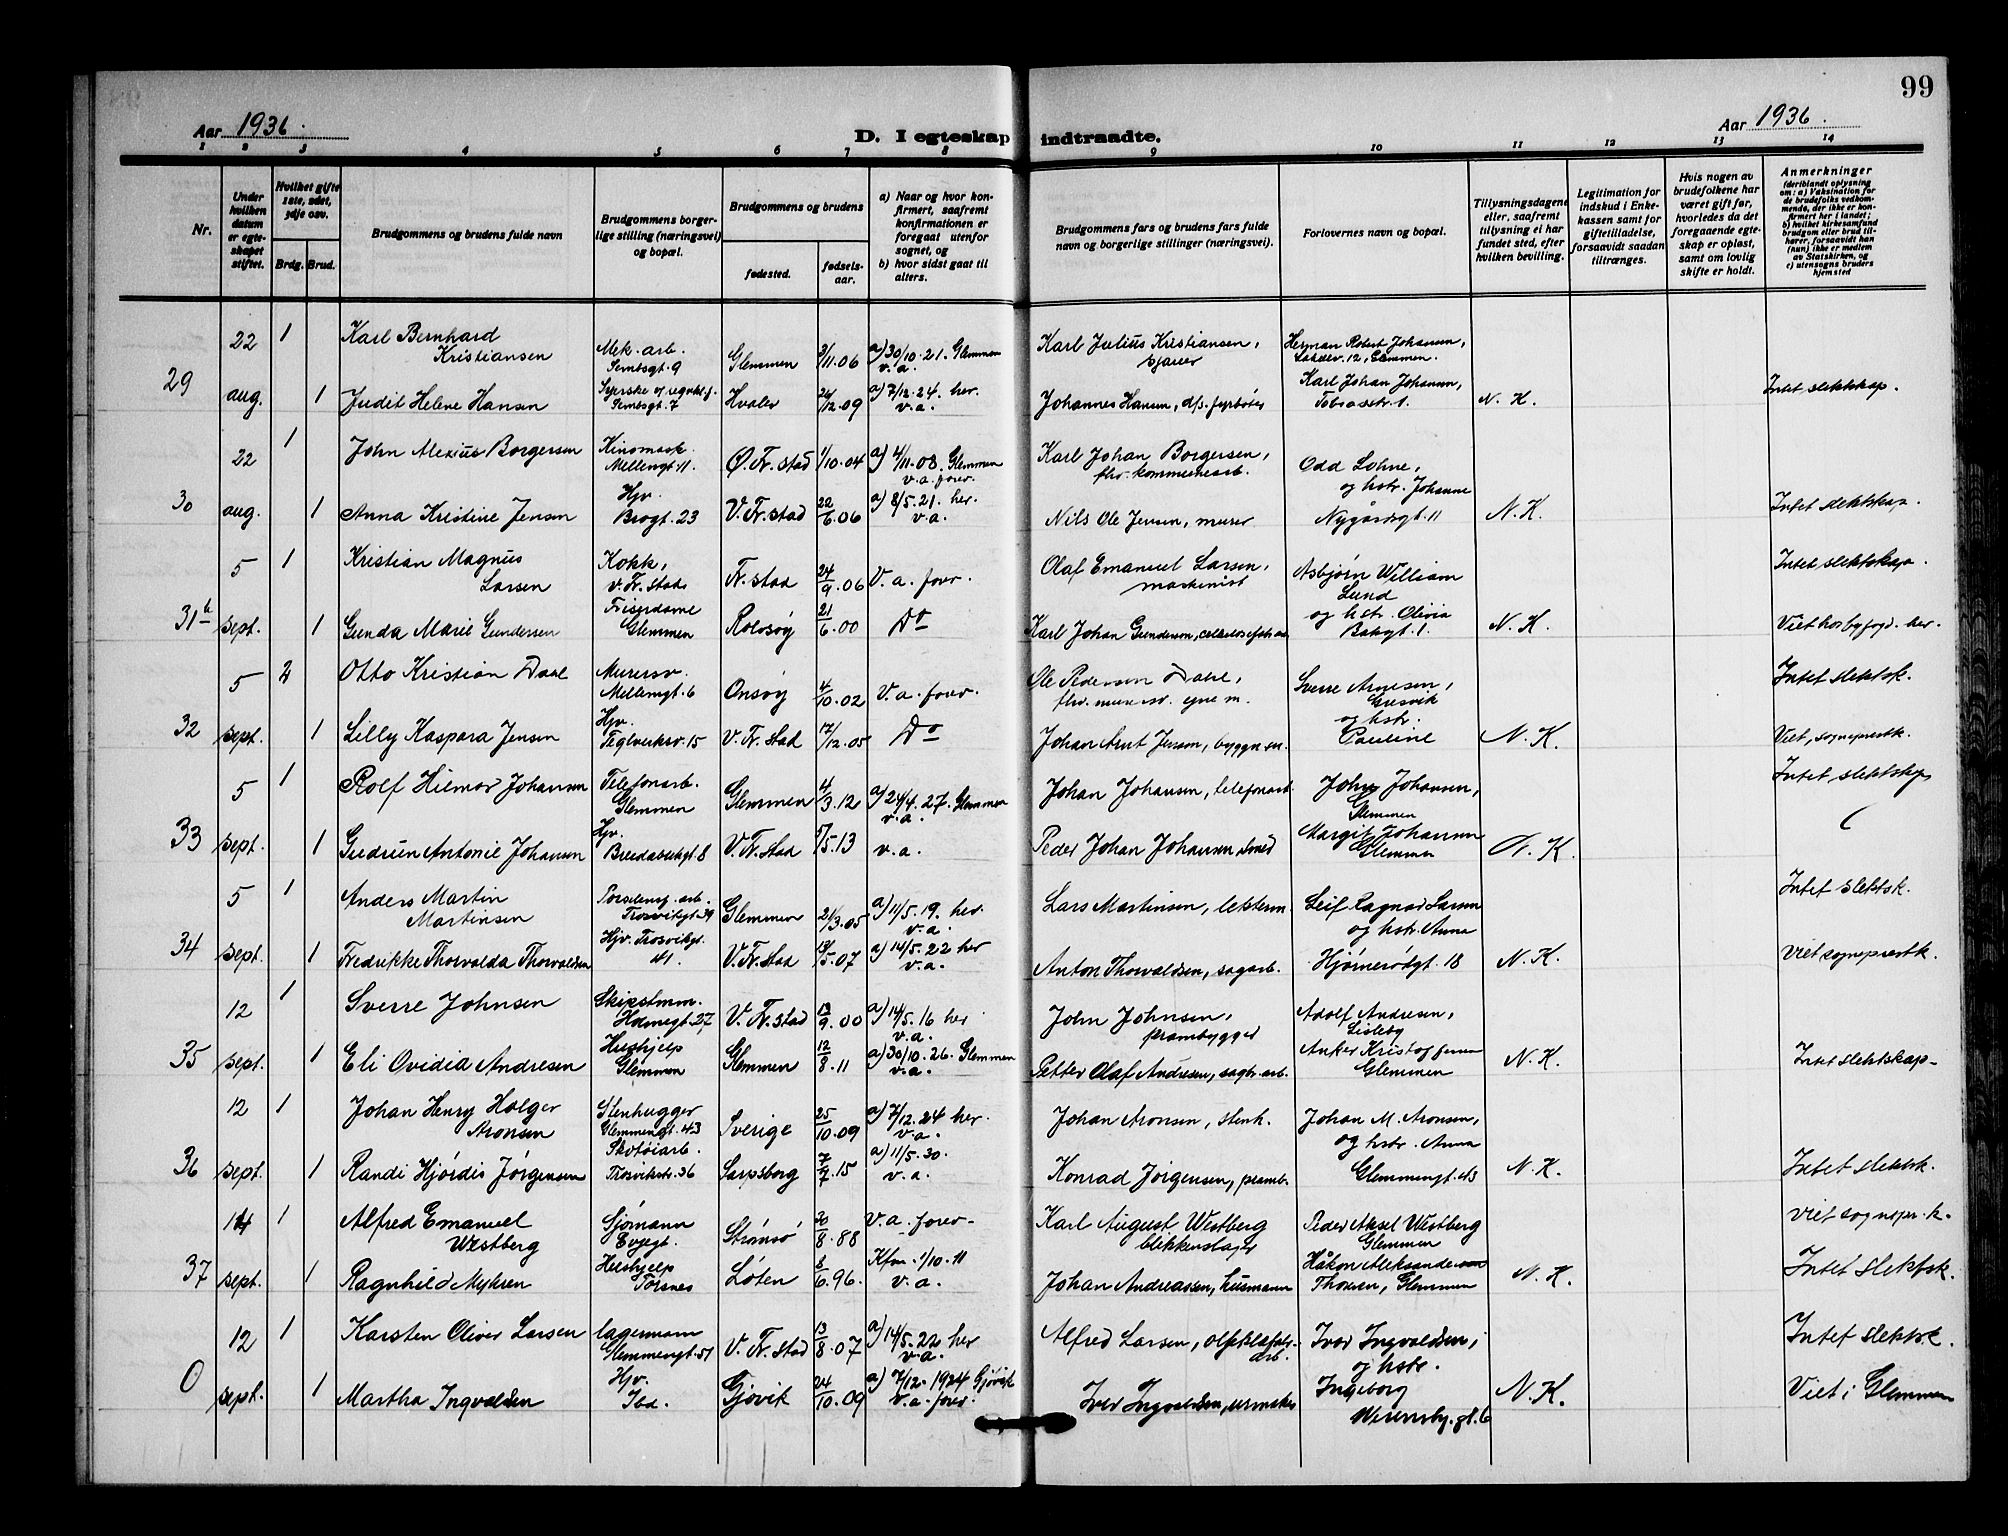 99
Aar 1936.
D. I egteskap indtraadte.
Aar 1936.
1 2 3 4 5 6 7 8 9 10 11 12 13 14
Nr.
Under hvilken datum er egteskapet stiftet.
Hvilket gifte 1ste, 2det, 3dje osv.
Brdg. Brud.
Brudgommens og brudens fulde navn
Brudgommens borgerlige stilling (næringsvei) og bopæl.
Brudgommens og brudens
fødested.
fødselsaar.
a) Naar og hvor konfirmert, saafremt konfirmationen er foregaat utenfor sognet, og
b) hvor sidst gaat til alters.
Brudgommens fars og brudens fars fulde navn og borgerlige stillinger (næringsvei).
Forlovernes navn og bopæl.
Tillysningsdagene eller, saafremt tillysning ei har fundet sted, efter hvilken bevilling.
Legitimation for indskud i Enkekassen samt for giftetilladelse, forsaavidt saadan tiltrænges.
Hvis nogen av brudefolkene har været gift før, hvorledes da det foregaaende egteskap er opløst, samt om lovlig skifte er holdt.
Anmerkninger
(deriblandt oplysning om: a) Vaksination for de brudefolks vedkommende, der ikke er konfirmert her i landet; b) hvilket kirkesamfund brudgom eller brud tilhører, forsaavidt han (hun) ikke er medlem av Statskirken, og c) utensogns bruders hjemsted
22 1 Karl Bernhard Kristiansen Mek. arb. Sembsgt. 9 Glemmen 3/11.06 a) 30/10.21. Glemmen v.a. Karl Julius Kristiansen, sjauer Herman Robert Johansen, 12, Glemmen.
29 aug. 1 Judit Helene Hansen Sembsgt. 7 Hvaler 26/12.09 a) 7/12.24. her. v.a. Johannes Hansen, d/s. fyrbøter Karl Johan Johansen, Tobiasstr. 1. N.K. Intet slektskap.
22 1 John Alexius Borgersen Kinomask. Mellemgt. 11. Ø. Fr.stad 1/10.04 a) 4/11.08. Glemmen v.a. forev. Karl Johan Borgersen, fhv. kommunearb. Odd Lohne, og hstr. Johanne
30 aug. 1 Anna Kristine Jensen Hjv. Brogt. 23 V. Fr.stad 22/6.06 a) 8/5.21. her. v.a. Nils Ole Jensen, murer Nygårdsgt. 11 N.K. Intet slektskap.
5 1 Kristian Magnus Larsen Kokk, V. Fr.stad Fr.stad 24/9.06 V.a. forev. Olaf Emanuel Larsen, maskinist Asbjørn William Lund Intet slektskap.
31 b sept. 1 Gunda Marie Gundersen Friserdame Glemmen Rolvsøy 21/6.00 Do Karl Johan Gundersen, og hstr. Olivia N.K. Viet hos byfogd. her.
5 2 Otto Kristian Dahl Murersv. Mellemgt. 6 Onsøy 4/10.02 V.a. forev. Ole Pedersen Dahl, Sverre Arnesen, Gresvik og hstr. Pauline Intet slektsk.
32 sept. 1 Lilly Kaspara Jensen Hjv. Teglverksv. 15 V. Fr.stad 17/12.05 Do Johan Arnt Jensen, N.K. Viet, sogneprestk.
5 1 Rolf Hilmar Johansen Telefonarb. Glemmen Glemmen 4/3.12 a) 24/4.27. Glemmen v.a. Johan Johansen, telefonarb. John Johansen, Glemmen Intet slektskap
33 sept. 1 Gudrun Antonie Johansen Hjv. 8 V. Fr.stad 5/5.13 v.a. Peder Johan Johansen, smed Margit Johansen Glemmen N.K.
5 1 Anders Martin Martinsen Porselensf. arb. Trosvikgt. 39 Glemmen 21/3.05 a) 11/5.19. her. v.a. Lars Martinsen, lekterm. Leif Ragnar Larsen og hstr. Anna Intet slektsk.
34 sept. 1 Fredrikke Thorvalda Thorvaldsen Hjv. Trosvikgt. 41. V. Fr.stad 13/5.07 a) 14/5.22 her v.a. Anton Thorvaldsen, sagarb. Hjørnerødgt. 18 N.K. Viet sogneprestk.
12 1 Sverre Johnsen Skipstmm. Holmegt. 27 V. Fr.stad 13/9.00 a) 14/5.16 her v.a. John Johnsen, prambygger Adolf Andresen, Lisleby
35 sept. 1 Eli Ovidia Andresen Hushjelp Glemmen Glemmen 12/8.11 a) 30/10.26. Glemmen v.a. Petter Olaf Andresen, sagbr. arb. Anker Kristoffersen Glemmen N.K. Intet slektskap.
12 1 Johan Henry Holger Aronsen Stenhugger Glemmengt. 43 Sverige 25/10.09 a) 7/12.24 her. v.a. Johan Aronsen, stenh. Johan M. Aronsen, og hstr. Anna
36 sept. 1 Randi Hjørdis Jørgensen Skotøiarb. Trosvikstr. 36 Sarpsborg 7/7.15 a) 11/5.30. v.a. Konrad Jørgensen, pramb. Glemmengt. 43 N.K. Intet slektsk.
14 1 Alfred Emanuel Westberg Sjømann Evjegt. Strømsø 30/8.88 V.a. forev. Karl August Westberg blikkenslager Peder Aksel Westberg Glemmen Viet sognepr.k.
37 sept. 1 Ragnhild Myhren Hushjelp Torsnes Løten 8/6.96. Kfm. 1/10.11 v.a. Johan Andreassen, husmann Håkon Aleksander Thoresen, Glemmen N.K. Intet slektsk.
12 1 Karsten Oliver Larsen lagermann Glemmengt. 51 V. Fr.stad 13/8.07 a) 14/5.22 her v.a. Alfred Larsen, arb. Ivar Ingvaldsen, og hstr. Intet slektsk.
0 sept. 1 Martha Ingvaldsen Hjv. Ibd. Gjøvik 24/10.09 a) 7/12.1924 Gjøvik v.a. forev. Iver Ingvaldsen, urmaker Ingeborg N.K. Viet i Glemmen